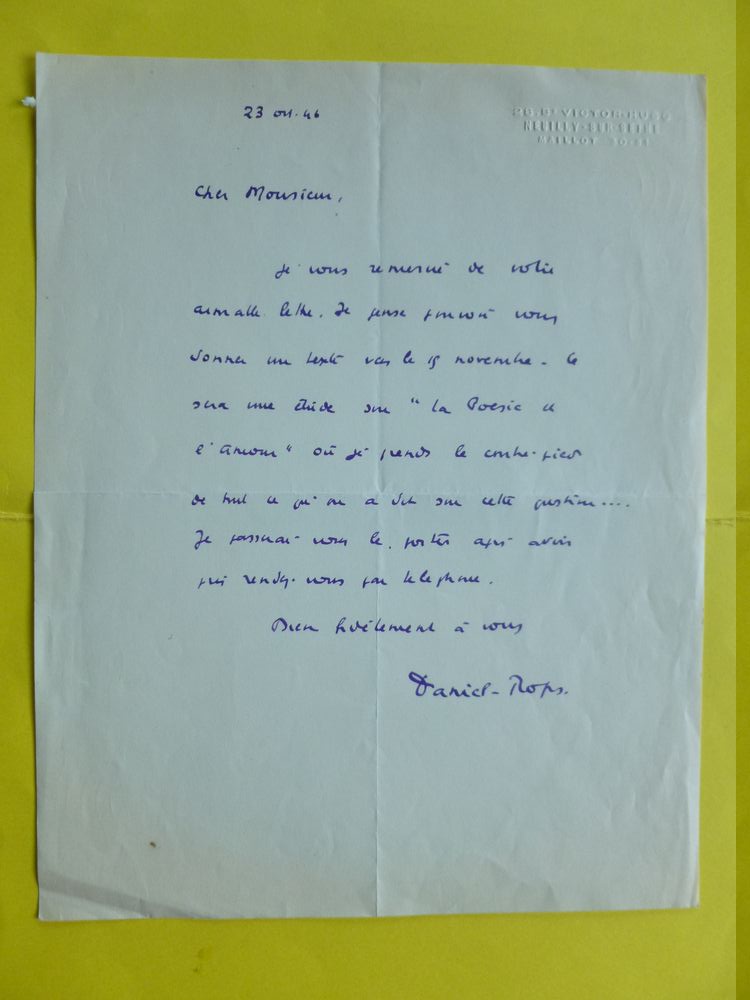 23 oct. 46
BD VICTOR-HUGO
NEUILLY-SUR-SEINE
MAILLOT
Cher Monsieur,
Je vous remercie de votre
aimable lettre. Je pense pouvoir vous
donner un texte vers le 15 novembre. Ce
sera une étude sur "la Poésie et
l'amour" où je prends le contre-pied
de tout ce qu'on a dit sur cette question....
Je passerai vous le porter après avoir
pris rendez-vous par téléphone.
Bien fidèlement à vous
Daniel-Rops.